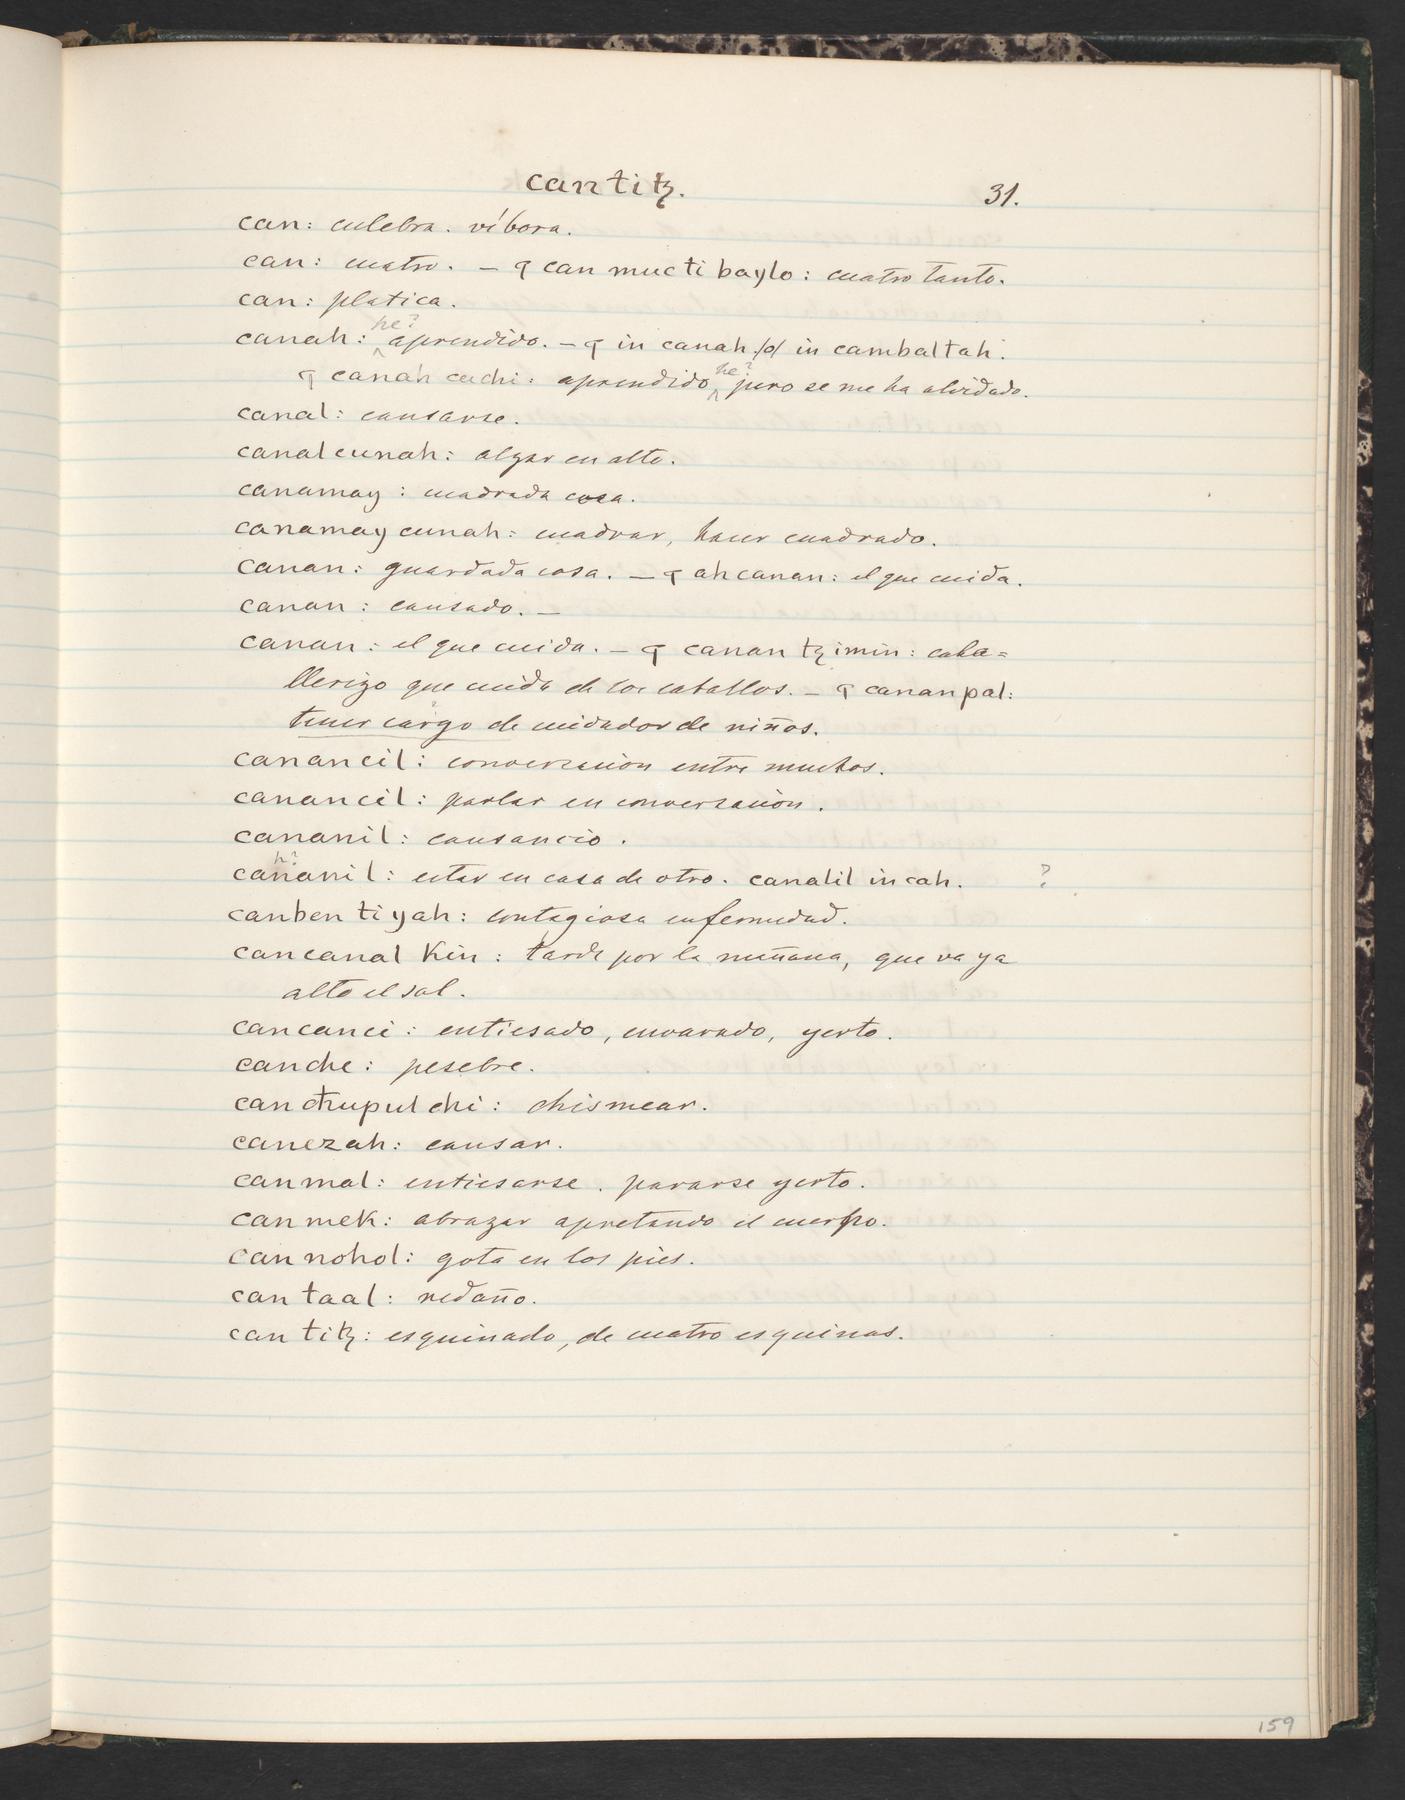 cantiꜩ.
31.
can: culebra. víbora.
can: cuatro. — ꟼ can muc ti baylo: cuatro tanto.
can: platica.
he?
canah: ^ aprendido. — ꟼ in canah .|. in cambaltah.
he?
ꟼ canah cuchi: aprendido ^ pero se me ha olvidado.
canal: cansarse.
canalcunah: alzar en alto.
canamay: cuadrada cosa.
canamay cunah: cuadrar, hacer cuadrado.
canan: guardada cosa. — ꟼ ah canan: el que cuida.
canan: cansado. —
canan: el que cuida. — ꟼ canan ꜩimin: caba=
llerizo que cuida de los caballos. — ꟼ canan pal:
tener cargo de cuidador de niños.
canancil: conversacion entre muchos.
canancil: parlar en conversacion.
cananil: cansancio.
h?
cananil: estar en casa de otro. canalil in cah. ?
canben ti yah: contagiosa enfermedad.
cancanal Kin: tarde por la mañana, que va ya
alto el sol.
cancanci: entiesado, envarado, yerto.
canche: pesebre.
can cħupul chi: chismear.
canezah: cansar.
canmal: entiesarse. pararse yerto.
canmek: abrazar apretando el cuerpo.
can nohol: gota en los pies.
can taal: redaño.
can tiꜩ: esquinado, de cuatro esquinas.
159